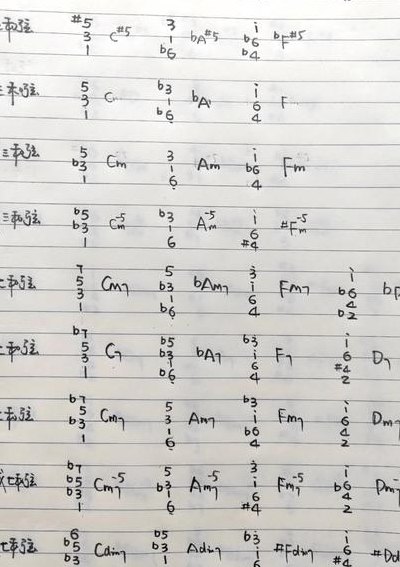 #5 3 i
和弦 3 C#5 1 bA#5 b6 bF#5
1 b6 b4
5 b3 i
三和弦 3 C 1 bA 6 F
1 b6 4
5 3 i
三和弦 b3 Cm 1 Am b6 Fm
1 6 4
b5 b3 i
三和弦 b3 Cm-5 1 Am-5 6 #Fm-5
1 6 #4
7 5 3 i
七和弦 5 Cm7 b3 bAm7 i Fm7 b6
3 1 6 4
1 b6 4 b2
b7 b5 b3 i
七和弦 5 C7 b3 bA7 i F7 6 D7
3 1 6 #4
1 b6 4 2
b7 5 b3 i
七和弦 5 Cm7 3 Am7 i Fm7 6 Dm7
b3 1 b6 4
1 6 4 2
b7 5 3 i
七和弦 b5 Cm7-5 b3 Am7-5 i Fm7-5 b6 Dm7-
b3 1 6 4
1 6 #4 2
b6 b5 b3 i
七和弦 b5 Cdim7 b3 Adim7 i #Fdim7 6 #Dd
b3 1 6 #4